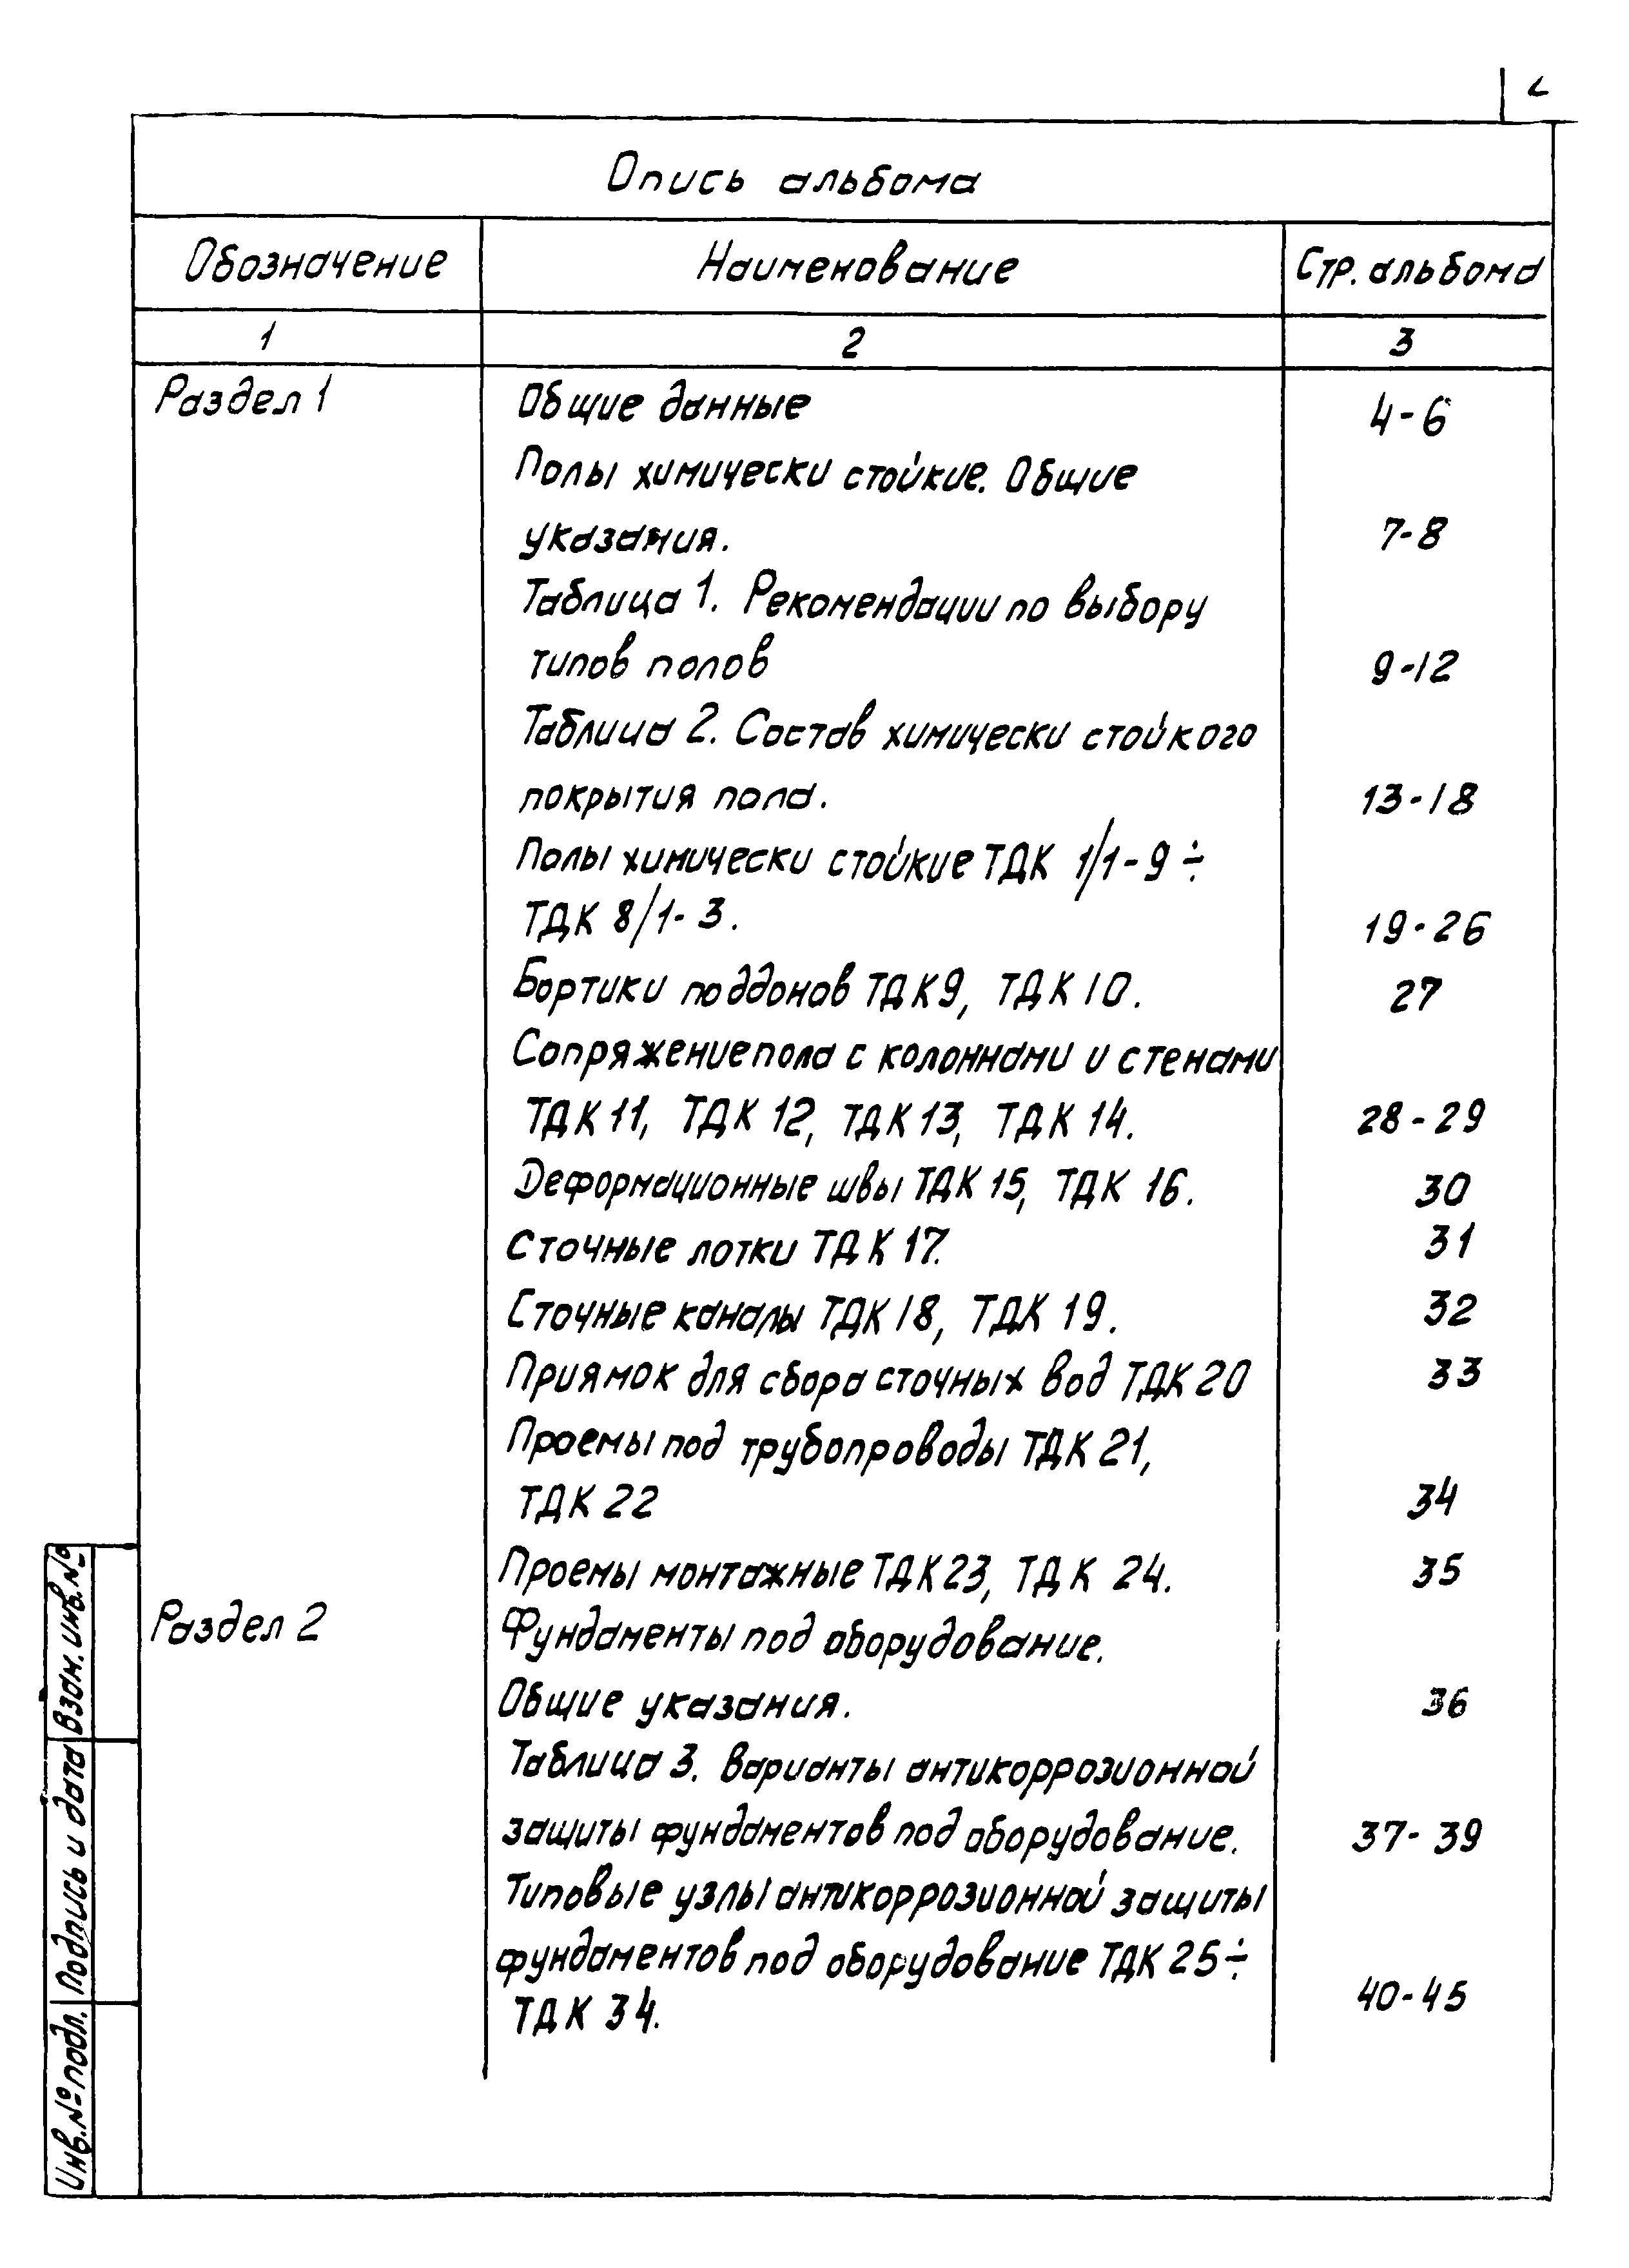 2
Опись альбома
Обозначение Наименование Стр. альбома
1 2 3
Раздел 1 Общие данные 4-6
Полы химически стойкие. Общие
указания. 7-8
Таблица 1. Рекомендации по выбору
типов полов 9-12
Таблица 2. Состав химически стойкого
покрытия пола. 13-18
Полы химически стойкие ТДК 1/1-9 ÷
ТДК 8/1-3. 19-26
Бортики поддонов ТДК 9, ТДК 10. 27
Сопряжение пола с колоннами и стенами
ТДК 11, ТДК 12, ТДК 13, ТДК 14. 28-29
Деформационные швы ТДК 15, ТДК 16. 30
Сточные лотки ТДК 17. 31
Сточные каналы ТДК 18, ТДК 19. 32
Приямок для сбора сточных вод ТДК 20 33
Проемы под трубопроводы ТДК 21,
ТДК 22 34
Проемы монтажные ТДК 23, ТДК 24. 35
Раздел 2 Фундаменты под оборудование.
Общие указания. 36
Таблица 3. Варианты антикоррозионной
защиты фундаментов под оборудование. 37-39
Типовые узлы антикоррозионной защиты
фундаментов под оборудование ТДК 25 ÷
ТДК 34. 40-45
Взам. инв. №
Подпись и дата
Инв. № подл.